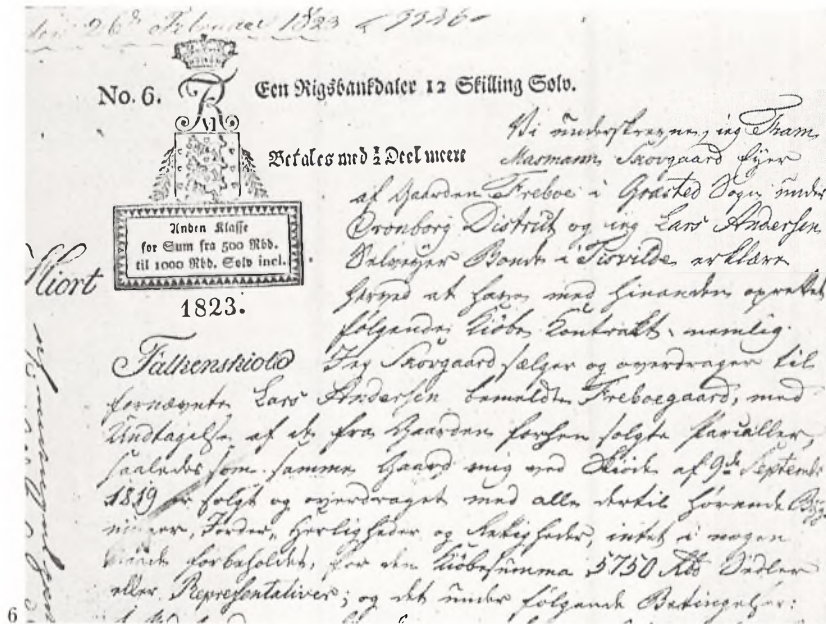 den 26de Februar 1823
No. 6.
Een Rigsbankdaler 12 Skilling Solv.
Betales med ½ Deel meere
Anden Klasse
for Sum fra 500 Rbd.
til 1000 Rbd. Solv incl.
1823.
Hiort
Falkenskiold
Vi underskrevne, jeg Tham
Masmann Skovgaard Ejer
af Gaarden Freboe i Græsted Sogn under
Cronborg District og jeg Lars Andersen
Selveyer Bonde i Tisvilde erklære
herved at have med hinanden oprettet
følgende Kiøbe Kontrakt, nemlig.
Jeg Skovgaard sælger og overdrager til
fornævnte Lars Andersen bemeldte Freboegaard, med
Undtagelse af de fra Gaarden forhen solgte Parceller,
saaledes som samme Gaard mig ved Skiøde af 9de Septembr
1819 er solgt og overdraget med alle dertil hørende Byg
ninger, Jorder, Herligheder og Rettigheder, intet i nogen
Maade forbeholdet, for den Kiøbesumma 5750 Rbd Sedler
eller Repræsentativer; og det under følgende Betingelser:
6